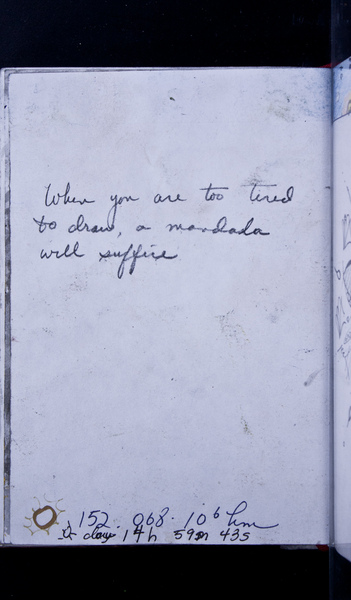 When you are too tired
to draw, a mandada
will suffice
152.068·10⁶ km
days 14h 59m 43s